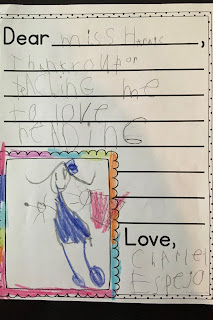 Dear miss Harris,
Thinkrouf or
tACiNG me
to love
reAdiNG
Love,
Charlei
Espejo